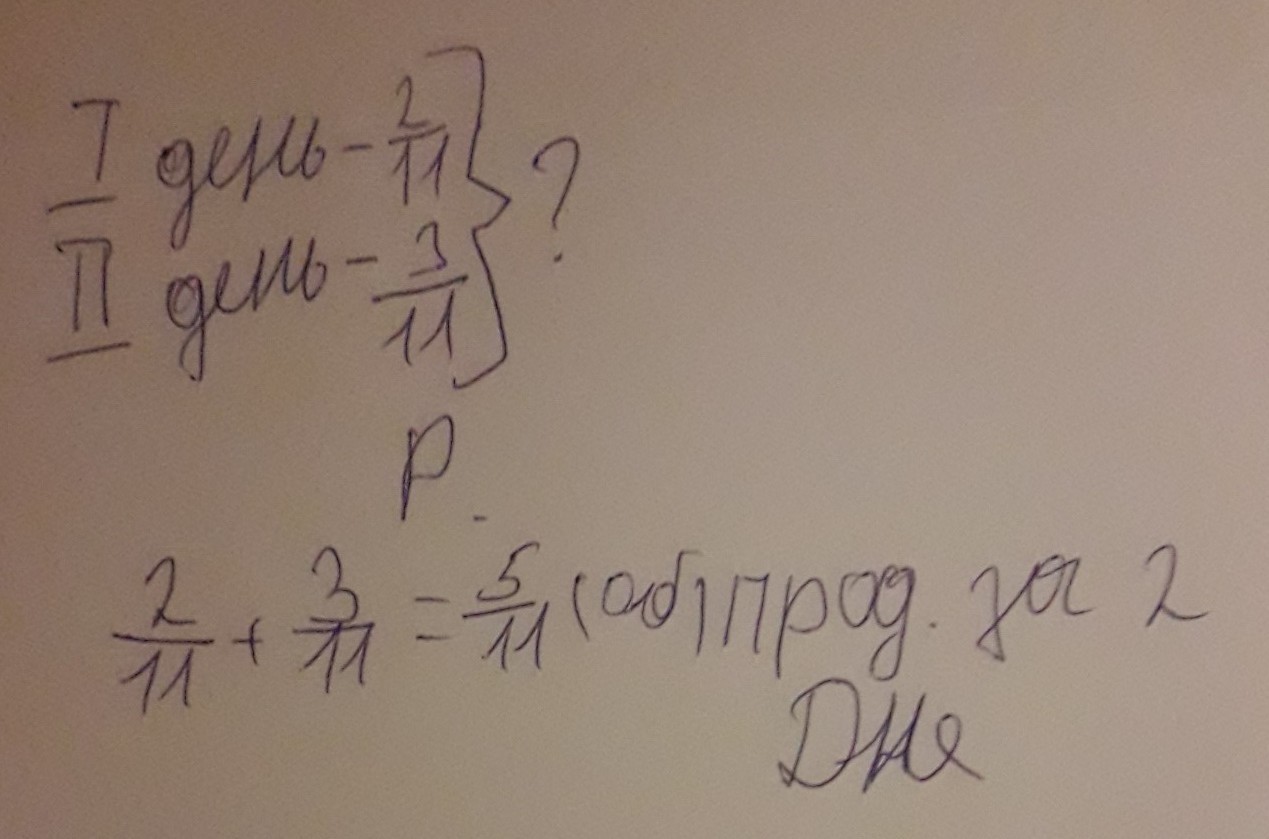 I день - 2/11 } ?
II день - 3/11
Р.
2/11 + 3/11 = 5/11 (об) прод. за 2
Дня